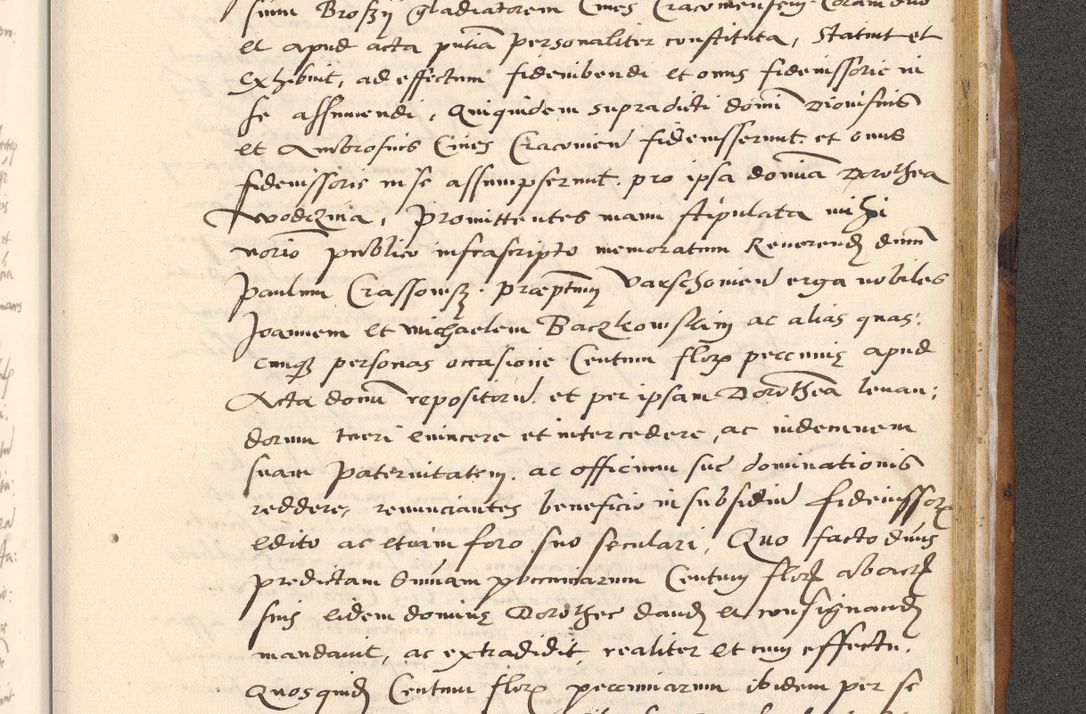 sium Broszÿ gladiatorem Cives Cracovienses. Coram duo
et apud acta pntia personaliter constituta, statuit et
exhibuit, ad effectum fideiubendi et onus fideiussorie in
se assumendi, Quiquidem supradicti domi Dionisius
et Ambrosius Cives Cracovien fideiusserunt et onus
fideiussorie in se assumpserunt pro ipsa domia Dorothea
Wodczina, promittentes manu stipulata mihi
norio publico infrascripto memoratum Reverend dnum
Paulum Crassowsz. præptum Varschovien erga nobiles
Joannem et Michaelem Baczkowskiy ac alias quas:
cunque personas occasione Centum flor pecuniis apud
Acta domi repositoru et per ipsam Dorothea levan:
dorum tueri evincere et intercedere, ac indemnem
suam Paternitatem. ac officium sue dominationis
reddere, renunciantes beneficio in subsidiu fideiussor
edito ac etiam foro suo seculari, Quo facto dnus
predictam sumam pecuniarum Centum flor ab actis
suis eidem domine Dorothee dand et consignand
mandavit, ac extradidit realiter et cum effectu.
Quosquid Centum flor pecuniarum ibidem per se